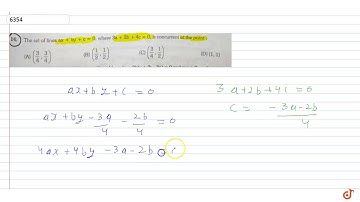 6354
14. The set of lines ax + by + c = 0, where 3a + 2b + 4c = 0, is concurrent at the point :
(A) (3/4, 3/4) (B) (1/2, 1/2) (C) (3/4, 1/2) (D) (1, 1)
ax + by + c = 0
3a + 2b + 4c = 0
c = -3a-2b/4
ax + by - 3a/4 - 2b/4 = 0
4ax + 4by - 3a - 2b = 0